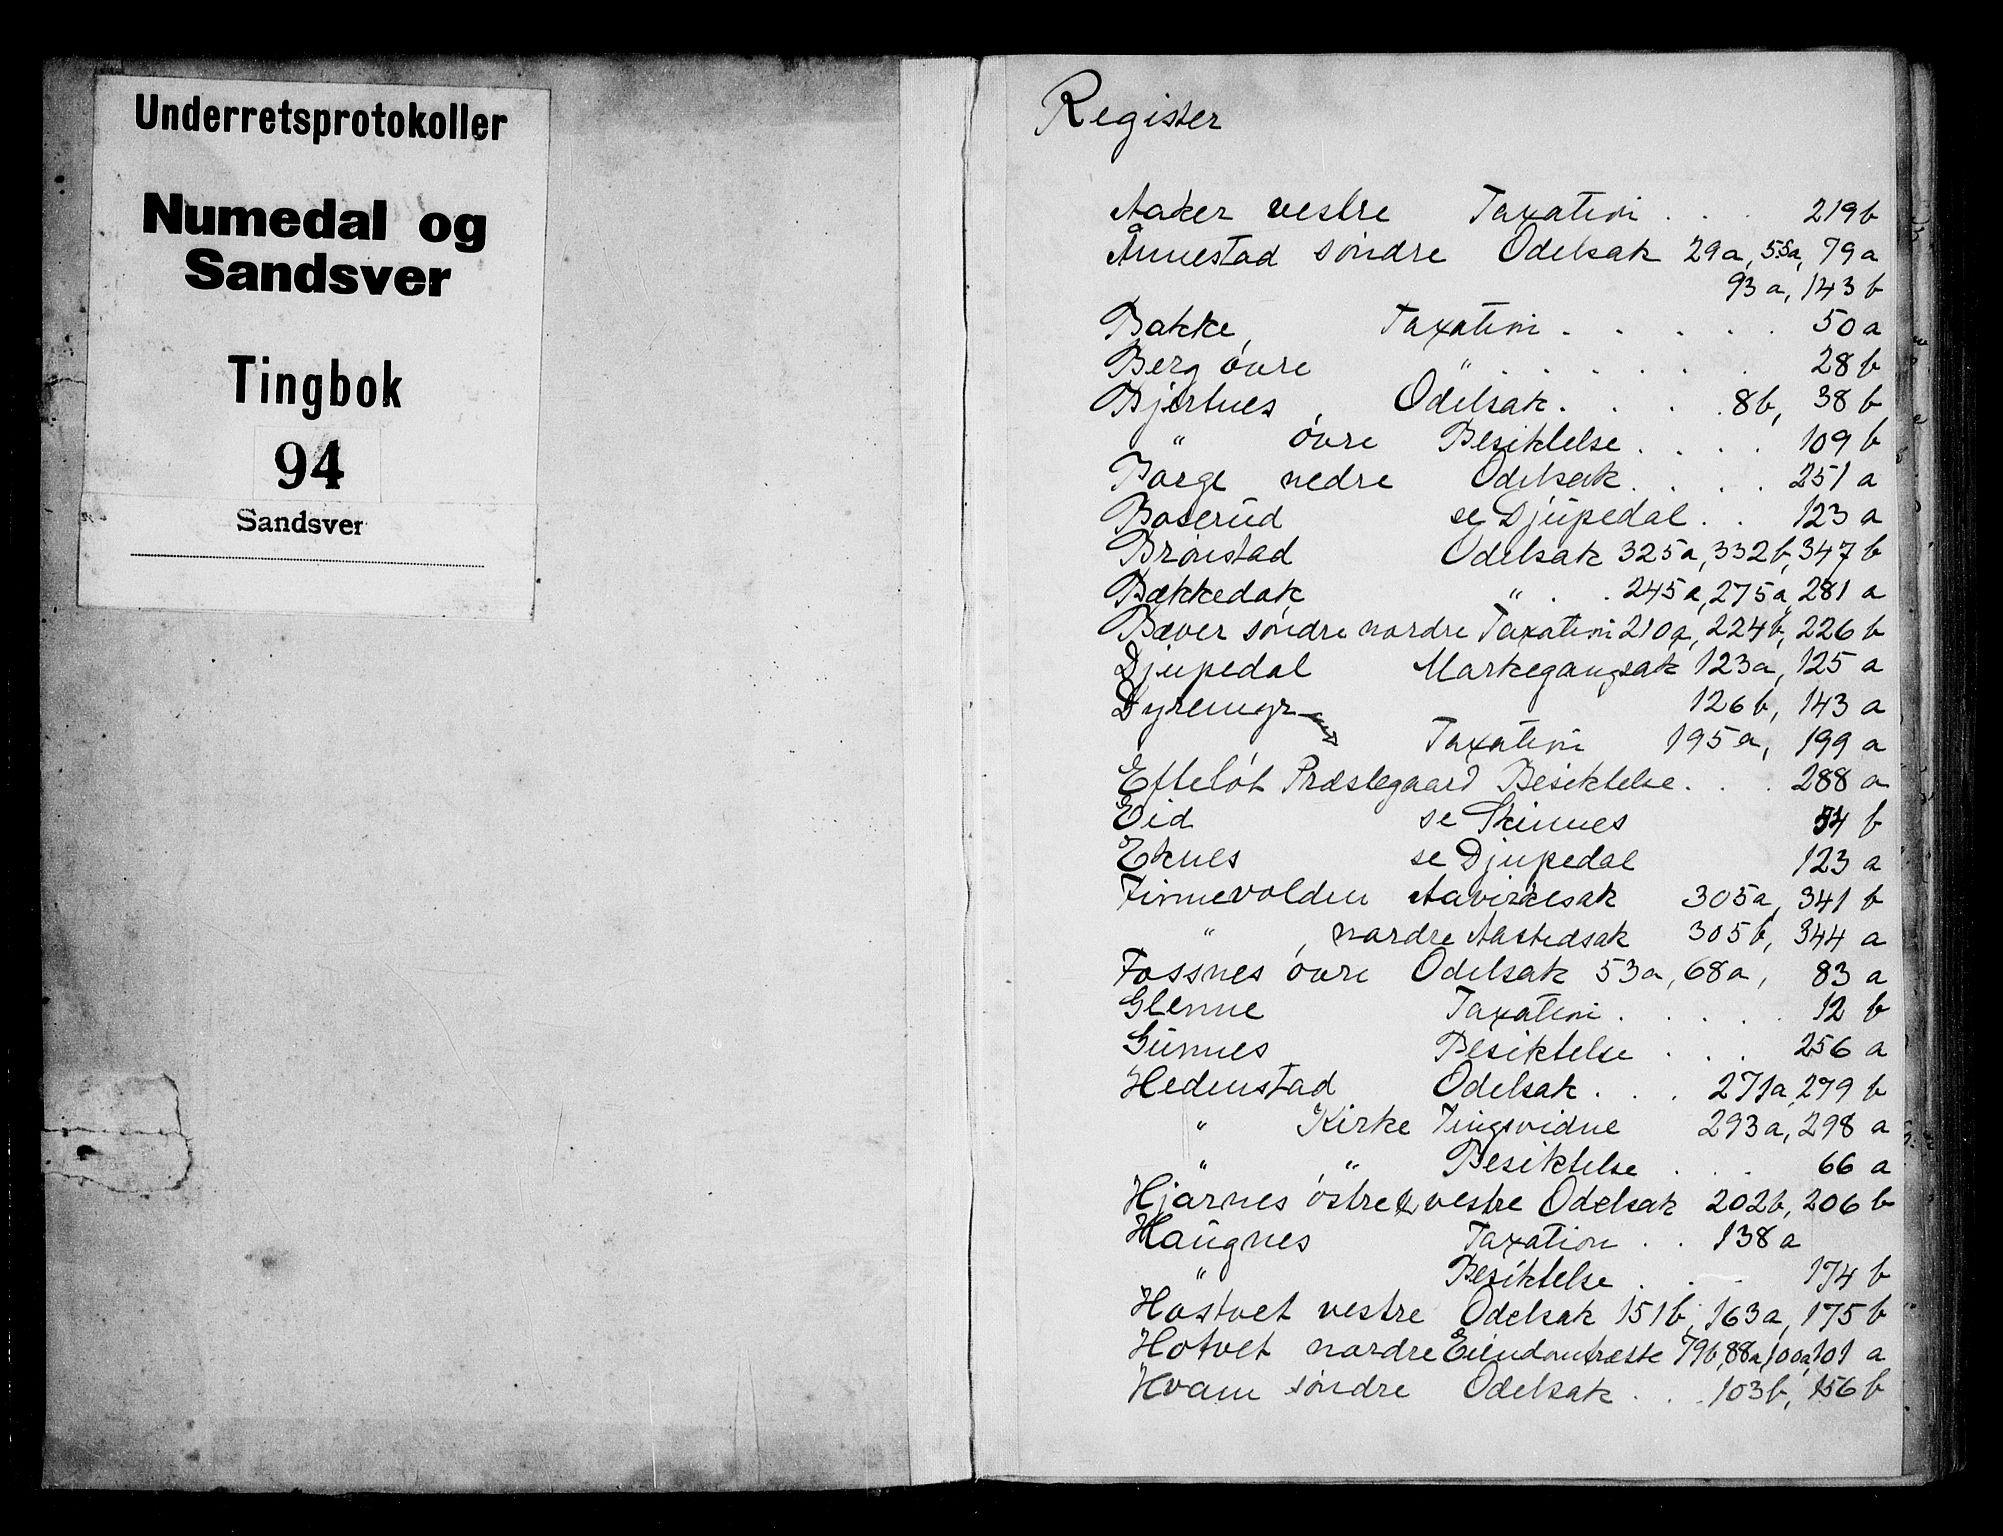 Underretsprotokoller
Numedal og
Sandsver
Tingbok
94
Sandsver
Register
Aaker vestre Taxation . . . 219 b
Ånnestad søndre Odelsak 29 a, 55a, 79 a
93 a, 143 b
Bakke, Taxation . . . . . . 50 a
Berg øvre " . . . . . . . 28 b
Bjertnes, Odelsak. . . . . 8b, 38 b
" øvre Besiktelse. . . . 109 b
Borge nedre Odelsak. . . . 251 a
Boserud se Djupedal. . . 123 a
Brønstad Odelsak 325a, 332b, 347 b
Bækkedok " . . 245a, 275a, 281 a
Bæver søndre nordre Taxation 210a, 224b, 226 b
Djupedal Markegangsak 123a, 125 a
Dyremyr 126 b, 143 a
Taxation 195a, 199 a
Efteløt Præstegaard Besiktelse. . . . 288 a
Eid se Skinnes 54 b
Eknes se Djupedal 123 a
Finnevolden Aavirkesak 305a, 341 b
" , nordre Aastedsak 305b, 344 a
Fossnes øvre Odelsak 53a, 68a, 83 a
Glenne Taxation . . . . . 12 b
Gunnes Besiktelse . . . 256 a
Hedenstad Odelsak . . . 271a, 279 b
" Kirke Tingsvidne 293a, 298 a
" " Besiktelse . . . 66 a
Hjarnes østre & vestre Odelsak 202b, 206 b
Haugnes Taxation . . 138 a
" Besiktelse . . . 174 b
Hostvet vestre Odelsak 151b, 163a, 175 b
Hotvet nordre Eiendomtræste 79b, 88a, 100a, 101 a
Hvam søndre Odelsak . . . 103b, 156 b